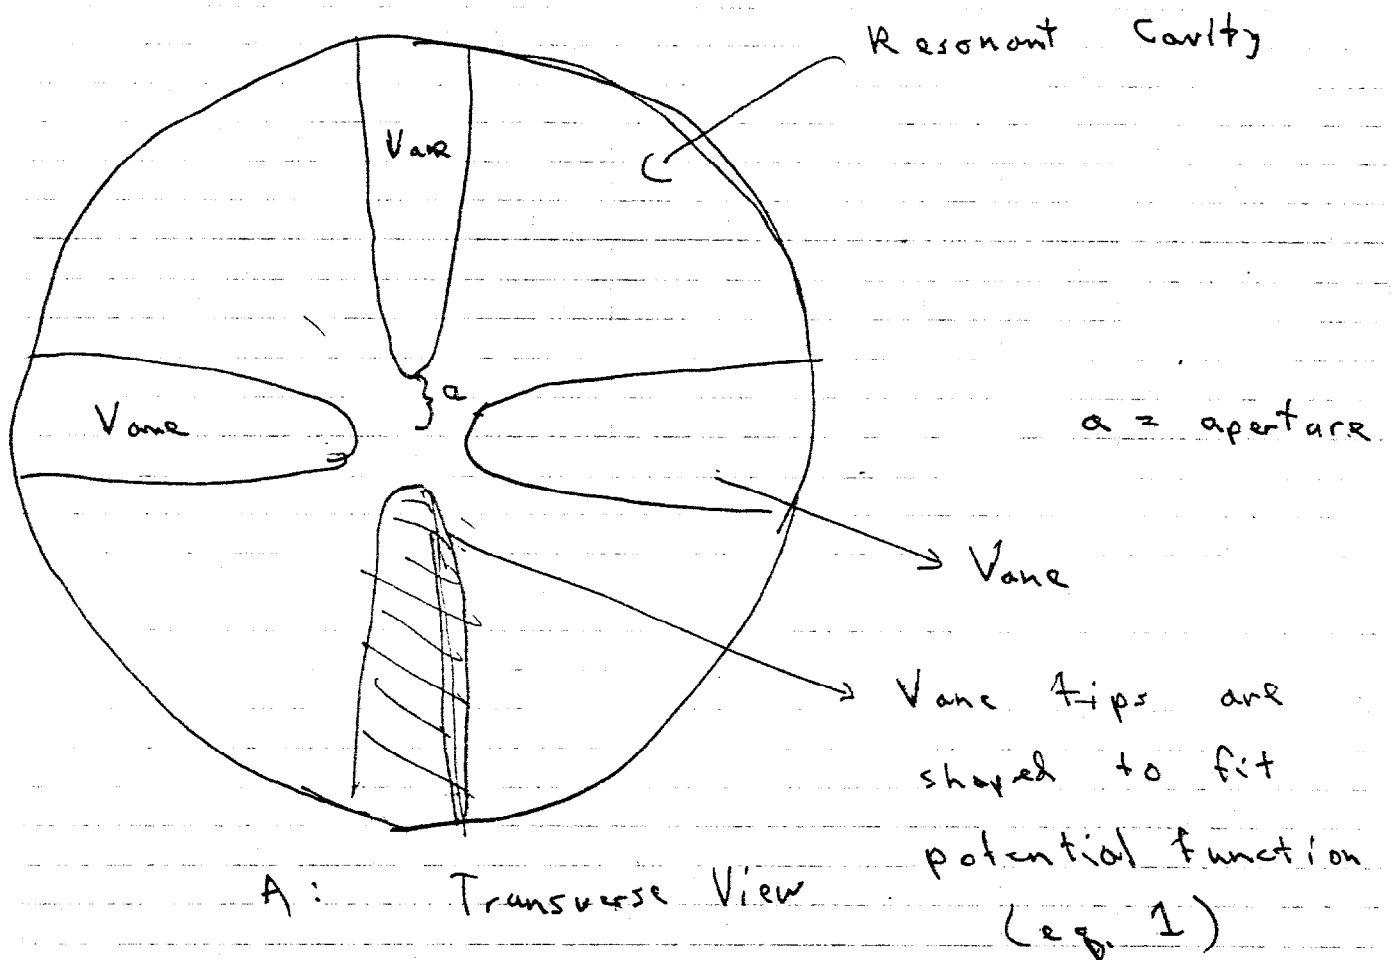 Resonant Cavity
Vane
a
Vane
a = aperture
Vane
Vane tips are
shaped to fit
potential function
(eq. 1)
A: Transverse View